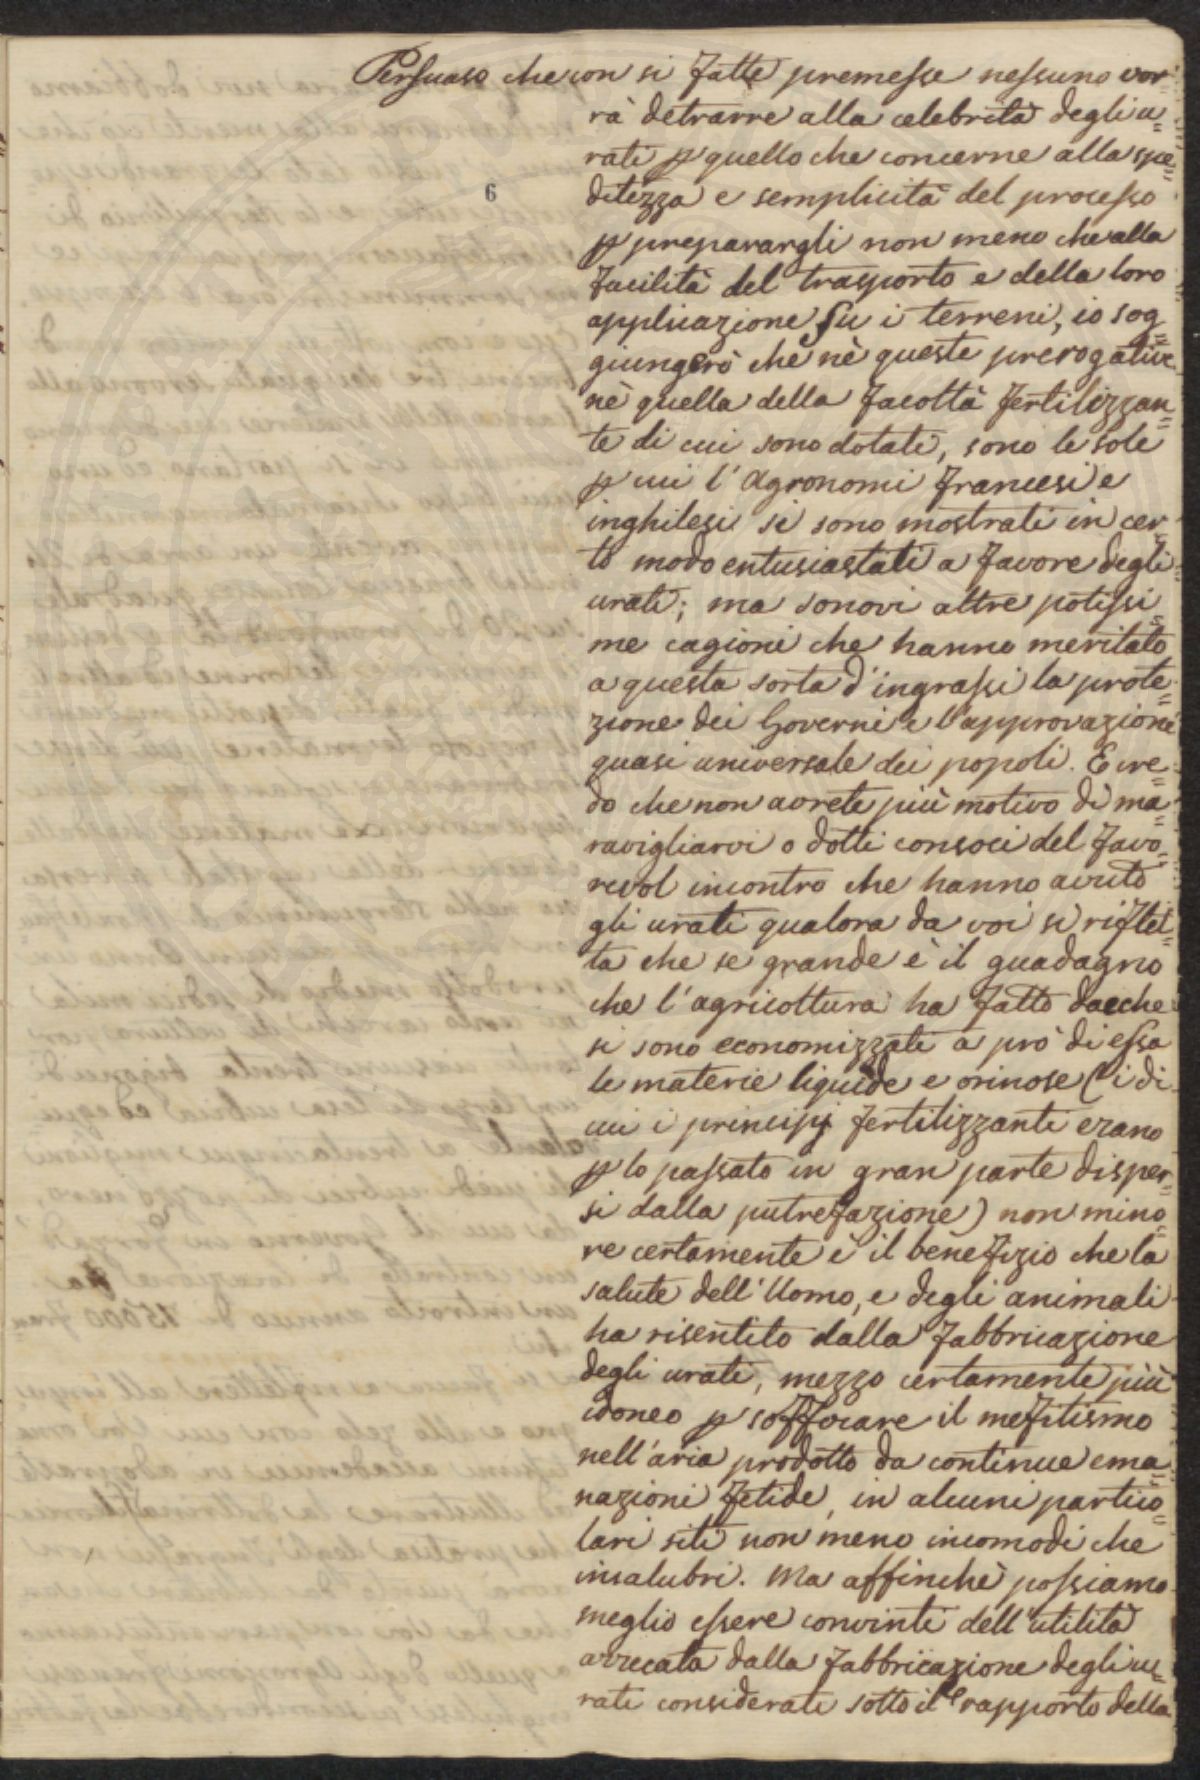 Persuaso che con si fatte premesse nessuno vor=
rà detrarre alla celebrità degli u=
rati p quello che concerne alla spe=
ditezza e semplicità del processo
6
p preparargli non meno che alla
facilità del trasporto e della loro
applicazione su i terreni, io sog=
giungerò che nè queste prerogative
nè quella della facoltà fertilizzan=
te di cui sono dotati, sono le sole
p cui l'Agronomi francesi e
inghilesi si sono mostrati in cer=
to modo entusiastati a favore degli
urati; ma sonovi altre potissi=
me cagioni che hanno meritato
a questa sorta d'ingrassi la prote=
zione dei Governi e l'approvazione
quasi universale dei popoli. E cre=
do che non avrete più motivo di ma=
ravigliarvi o dotti consoci del favo=
revol incontro che hanno avuto
gli urati qualora da voi si riflet=
ta che se grande è il guadagno
che l'agricoltura ha fatto dacche
si sono economizzati a prò di essa
le materie liquide e orinose (i di
cui i principj fertilizzanti erano
p lo passato in gran parte disper=
si dalla putrefazione) non mino=
re certamente è il benefizio che la
salute dell'Uomo, e degli animali
ha risentito dalla fabbricazione
degli urati, mezzo certamente più
idoneo p soffocare il mefitismo
nell'aria prodotto da continue ema=
nazioni fetide, in alcuni partico=
lari siti non meno incomodi che
insalubri. Ma affinchè possiamo
meglio essere convinti dell'utilità
arrecata dalla fabbricazione degli u=
rati considerati sotto il rapporto della